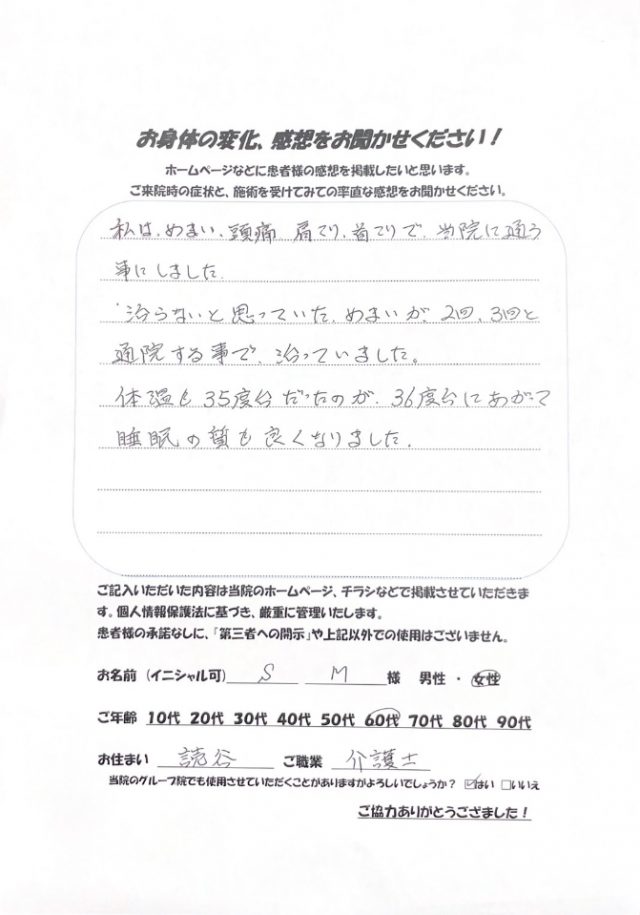 お身体の変化、感想をお聞かせください！
ホームページなどに患者様の感想を掲載したいと思います。
ご来院時の症状と、施術を受けてみての率直な感想をお聞かせください。
私は、めまい、頭痛 肩こり、首こりで、当院に通う
事にしました。
治らないと思っていた、めまいが、2回、3回と
通院する事で、治っていました。
体温も35度台だったのが、36度台にあがって
睡眠の質も良くなりました。
ご記入いただいた内容は当院のホームページ、チラシなどで掲載させていただきま
す。個人情報保護法に基づき、厳重に管理いたします。
患者様の承諾なしに、「第三者への開示」や上記以外での使用はございません。
お名前（イニシャル可） S M 様 男性 ・ 女性
ご年齢 10代 20代 30代 40代 50代 60代 70代 80代 90代
お住まい 読谷 ご職業 介護士
当院のグループ院でも使用させていただくことがありますがよろしいでしょうか？ ☑はい □いいえ
ご協力ありがとうござました！